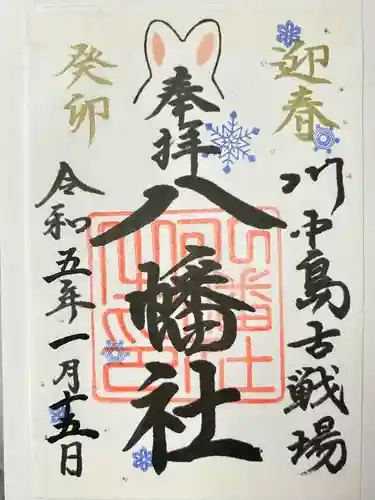 迎春
川中島古戦場
奉拝
八幡社
癸卯
令和五年一月十五日